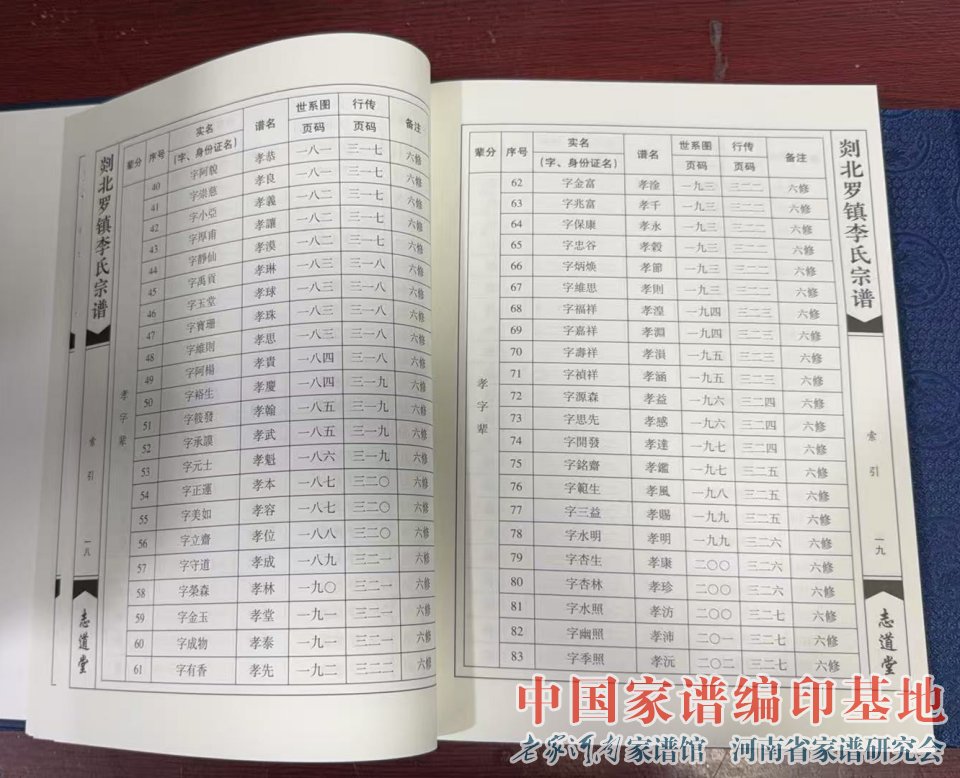 剡北罗镇李氏宗谱
索引
一八
志道堂
辈分 序号 实名 谱名 世系图 行传 备注
(字、身份证名) 页码 页码
孝字辈
40 字阿貌 孝恭 一八一 三一七 六修
41 字崇慈 孝良 一八一 三一七 六修
42 字小亞 孝義 一八二 三一七 六修
43 字厚甫 孝讓 一八二 三一七 六修
44 字靜仙 孝漠 一八二 三一七 六修
45 字禹貢 孝琳 一八三 三一八 六修
46 字玉堂 孝球 一八三 三一八 六修
47 字寶珊 孝珠 一八三 三一八 六修
48 字維則 孝思 一八三 三一八 六修
49 字阿楊 孝貴 一八四 三一八 六修
50 字裕生 孝慶 一八四 三一九 六修
51 字筱發 孝翰 一八五 三一九 六修
52 字承謨 孝武 一八五 三一九 六修
53 字元士 孝魁 一八六 三一九 六修
54 字正運 孝本 一八七 三二〇 六修
55 字美如 孝容 一八七 三二〇 六修
56 字立齋 孝位 一八八 三二〇 六修
57 字守道 孝成 一八九 三二一 六修
58 字榮森 孝林 一九〇 三二一 六修
59 字金玉 孝堂 一九一 三二一 六修
60 字成物 孝泰 一九一 三二一 六修
61 字有香 孝先 一九二 三二二 六修
辈分 序号 实名 谱名 世系图 行传 备注
(字、身份证名) 页码 页码
孝字辈
62 字金富 孝淦 一九三 三二二 六修
63 字兆富 孝千 一九三 三二二 六修
64 字保康 孝永 一九三 三二二 六修
65 字忠谷 孝穀 一九三 三二二 六修
66 字炳焕 孝節 一九三 三二二 六修
67 字維思 孝則 一九三 三二二 六修
68 字福祥 孝湟 一九四 三二三 六修
69 字嘉祥 孝淵 一九四 三二三 六修
70 字壽祥 孝溳 一九五 三二三 六修
71 字禎祥 孝涵 一九五 三二三 六修
72 字源森 孝益 一九六 三二四 六修
73 字思先 孝感 一九六 三二四 六修
74 字開發 孝達 一九七 三二四 六修
75 字銘齋 孝鑑 一九七 三二五 六修
76 字範生 孝風 一九八 三二五 六修
77 字三益 孝賜 一九九 三二五 六修
78 字水明 孝明 一九九 三二六 六修
79 字杏生 孝康 二〇〇 三二六 六修
80 字杏林 孝珍 二〇〇 三二六 六修
81 字水照 孝汸 二〇〇 三二七 六修
82 字幽照 孝沛 二〇一 三二七 六修
83 字季照 孝沅 二〇二 三二七 六修
剡北罗镇李氏宗谱
索引
一九
志道堂
中国家谱编印基地
老家河南家谱馆 河南省家谱研究会